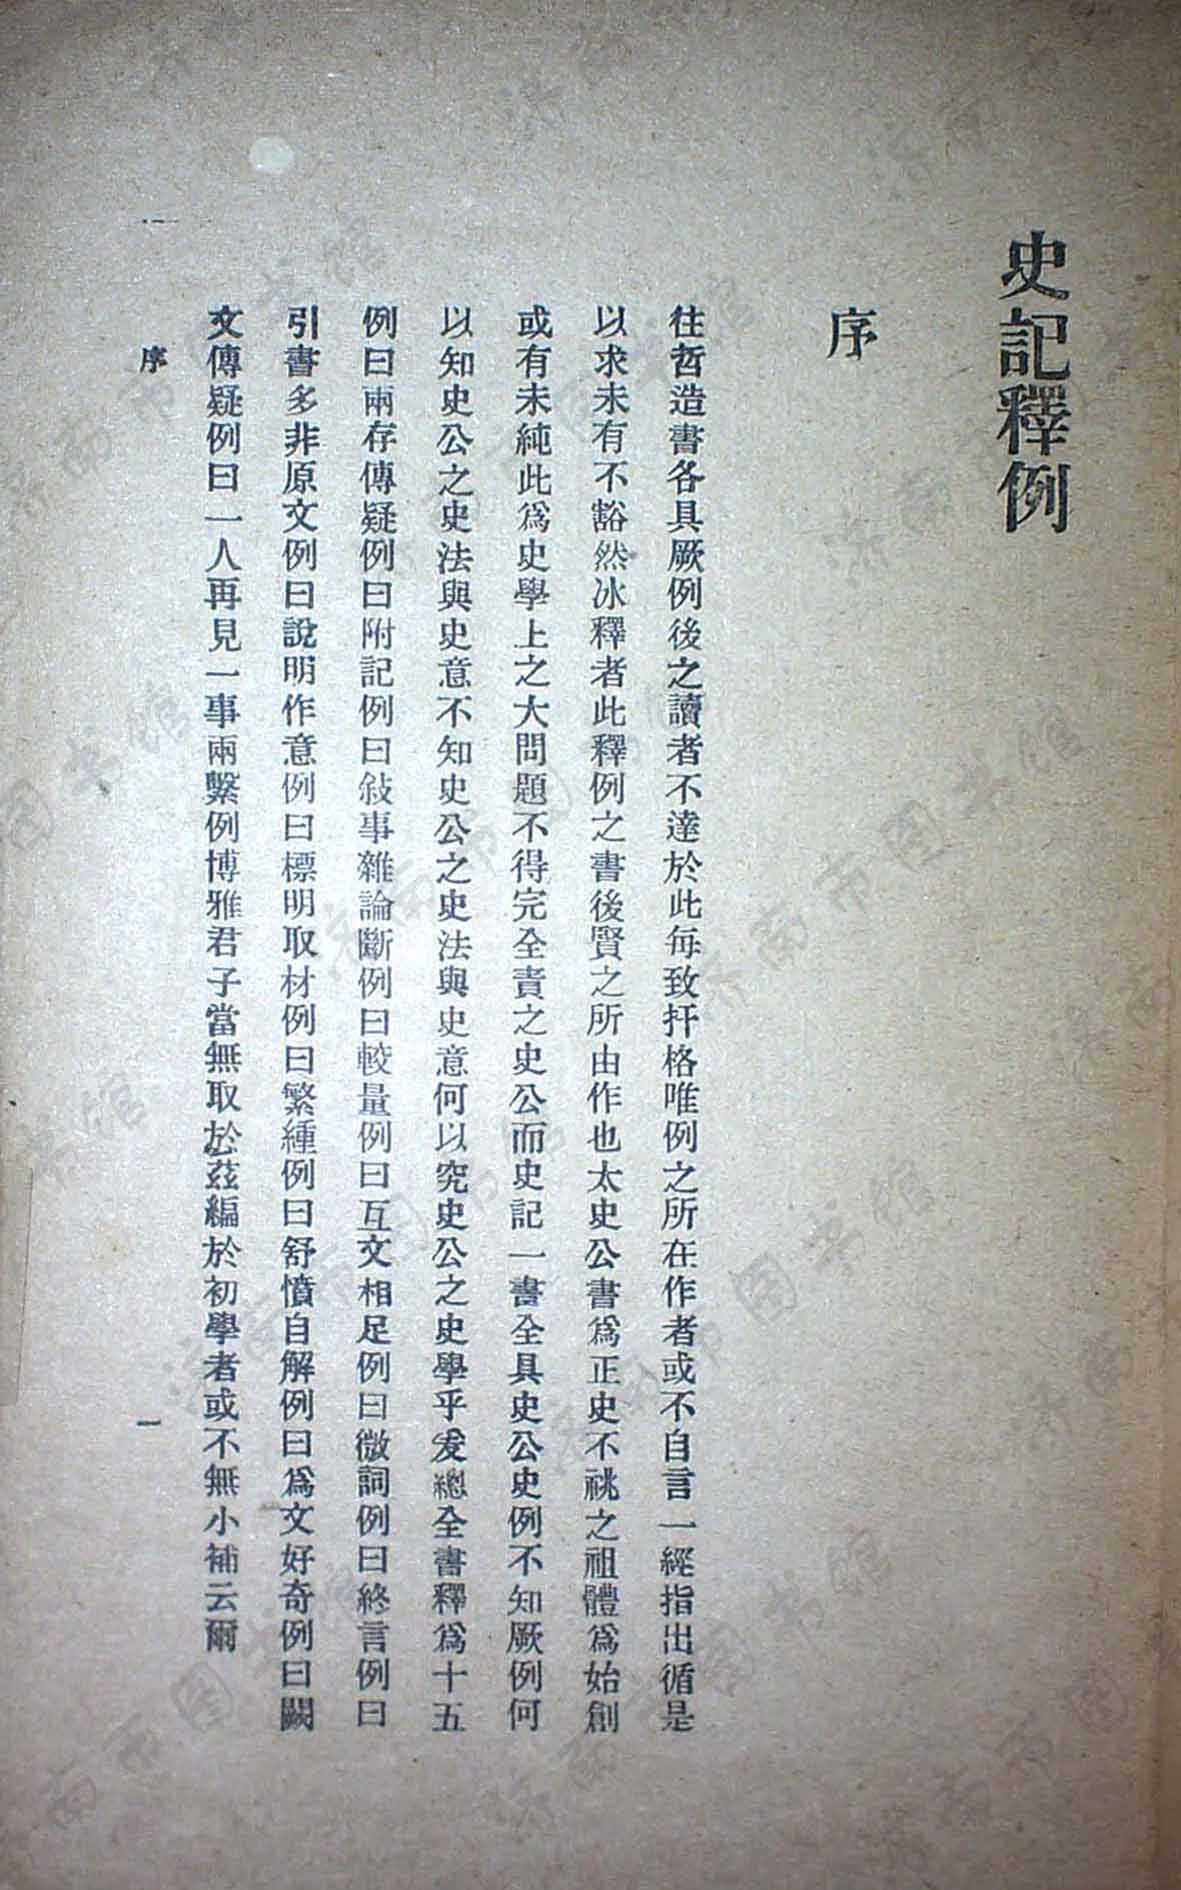 史記釋例
序
往哲造書各具厥例後之讀者不達於此每致扞格唯例之所在作者或不自言一經指出循是
以求未有不豁然冰釋者此釋例之書後賢之所由作也太史公書爲正史不祧之祖體爲始創
或有未純此爲史學上之大問題不得完全責之史公而史記一書全具史公史例不知厥例何
以知史公之史法與史意不知史公之史法與史意何以究史公之史學乎爰總全書釋爲十五
例曰兩存傳疑例曰附記例曰敍事雜論斷例曰較量例曰互文相足例曰微詞例曰終言例曰
引書多非原文例曰說明作意例曰標明取材例曰繁緟例曰舒憤自解例曰爲文好奇例曰闕
文傳疑例曰一人再見一事兩繫例博雅君子當無取於茲編於初學者或不無小補云爾
序
一
济南市图书馆